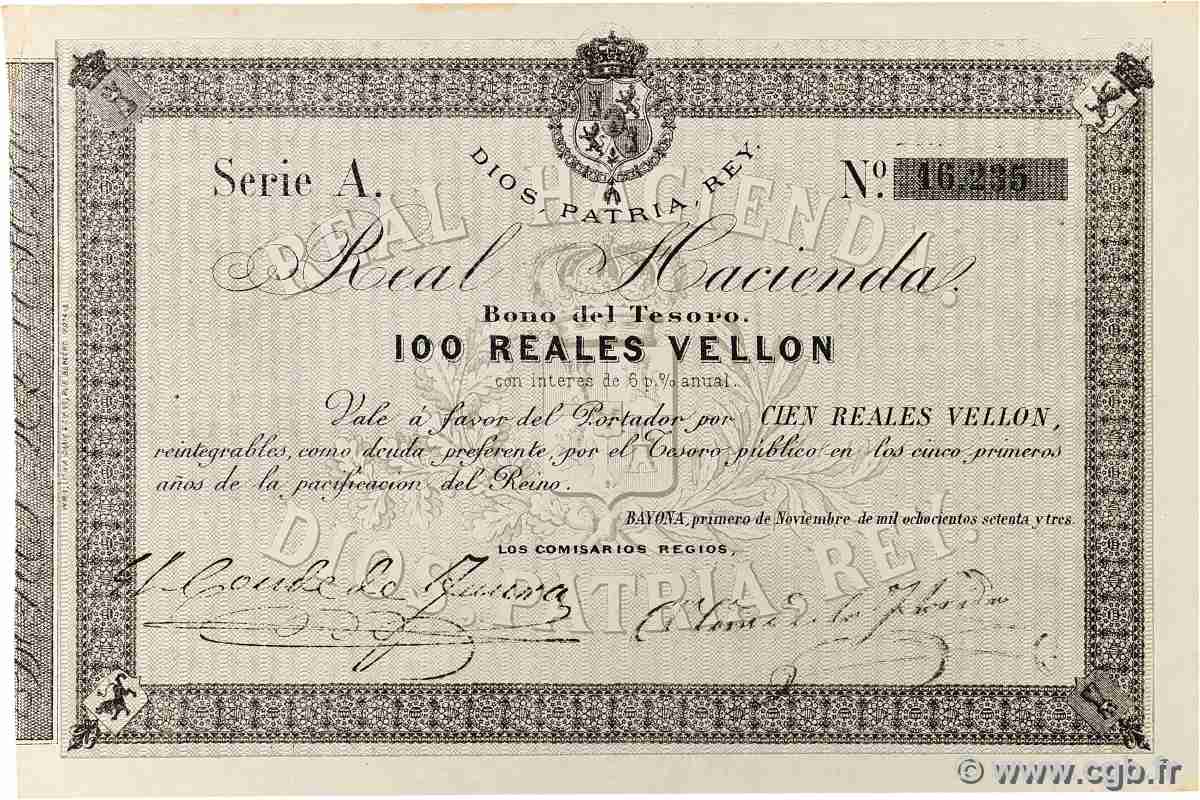 DIOS, PATRIA, REY.
Serie A.
Nº. 16.235
REAL HACIENDA.
Real Hacienda.
Bono del Tesoro.
100 REALES VELLON
con interes de 6 p.% anual.
Vale á favor del Portador por CIEN REALES VELLON,
reintegrables, como deuda preferente, por el Tesoro público en los cinco primeros
años de la pacificacion del Reino.
BAYONA, primero de Noviembre de mil ochocientos setenta y tres.
LOS COMISARIOS REGIOS,
DIOS, PATRIA, REY.
© www.cgb.fr